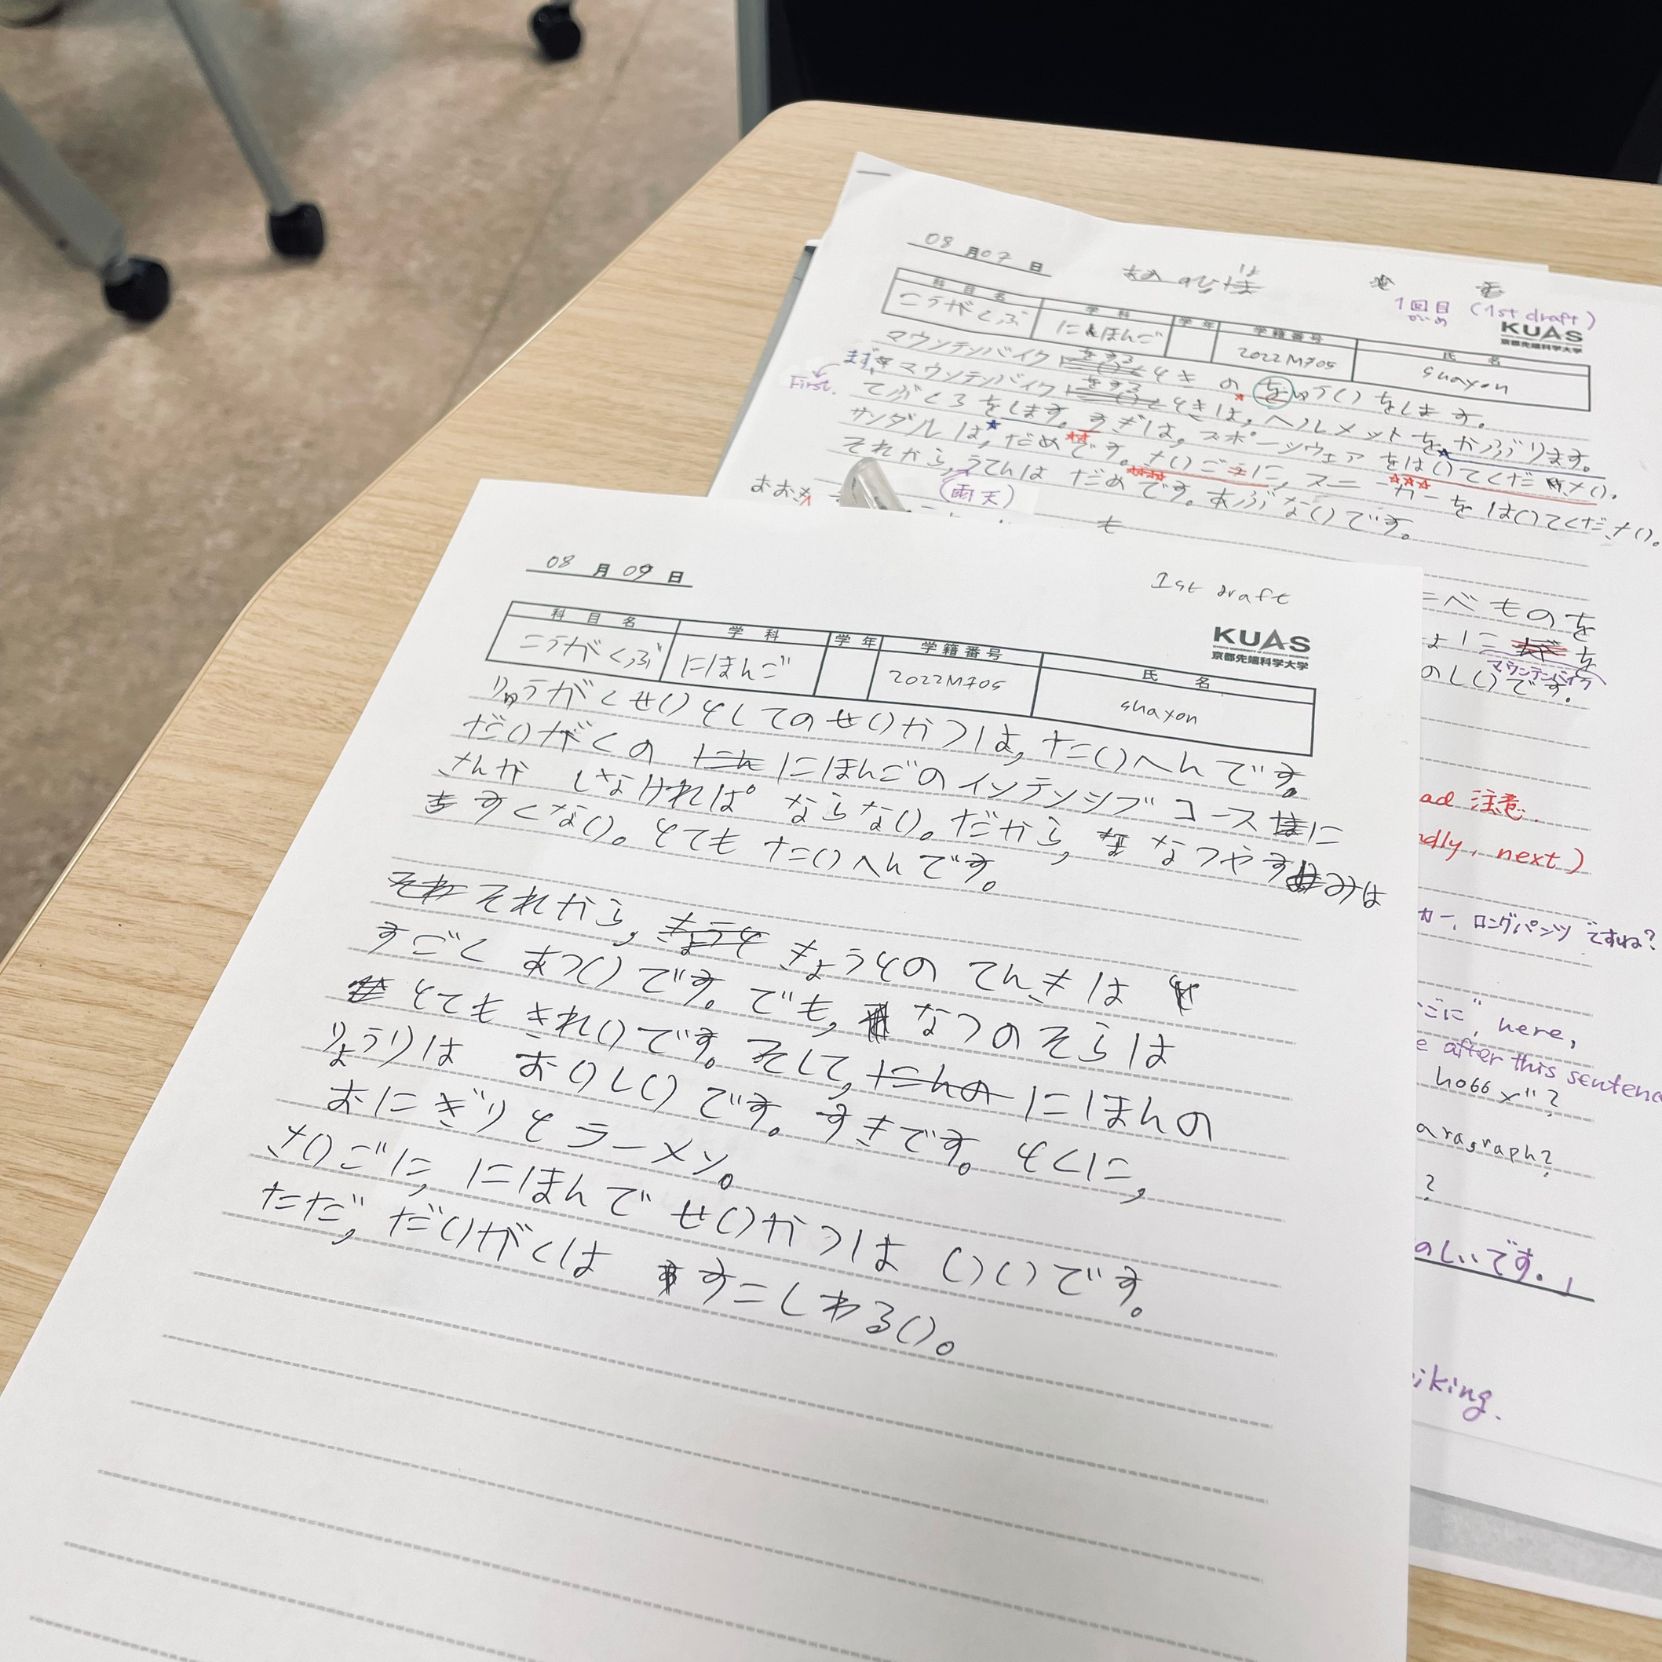 08月07日
1回目 (1st draft)
がいめ
KUAS
京都先端科学大学
科目名 学科 学年 学籍番号 氏名
こうがくぶ にほんご 2022M705 shayon
マウンテンバイク をする ときの を ゅういをします。
First. まず、マウンテンバイク をする ときは、ヘルメットをかぶります。
てぶくろをします。すぎは、スポーツウェアをはいてください。
サンダルは、だめです。さいごに、スニーカーをはいてください。
それから、うてんは だめです。あぶないです。
(雨天)
おおき
も
べものを
を
マウンテンバイク
のしいです。
ad 注意.
dly, next)
カー, ロングパンツ ですね?
こに", here,
e after this sentence
hobby"?
aragraph?
?
のしいです。」
iking.
08月09日
1st draft
KUAS
京都先端科学大学
科目名 学科 学年 学籍番号 氏名
こうがくぶ にほんご 2022M705 shayon
りゅうがくせいとしてのせいかつは、たいへんです。
だいがくの にほんごのインテンシブコースに
さんかしなければならない。だから、なつやすみは
すくない。とてもたいへんです。
それから、きょうとのてんきは
すごくあついです。でも、なつのそらは
とてもきれいです。そして、にほんの
りょうりは おいしいです。すきです。とくに、
おにぎりとラーメン。
さいごに、にほんでせいかつは いいです。
ただ、だいがくは すこしわるい。